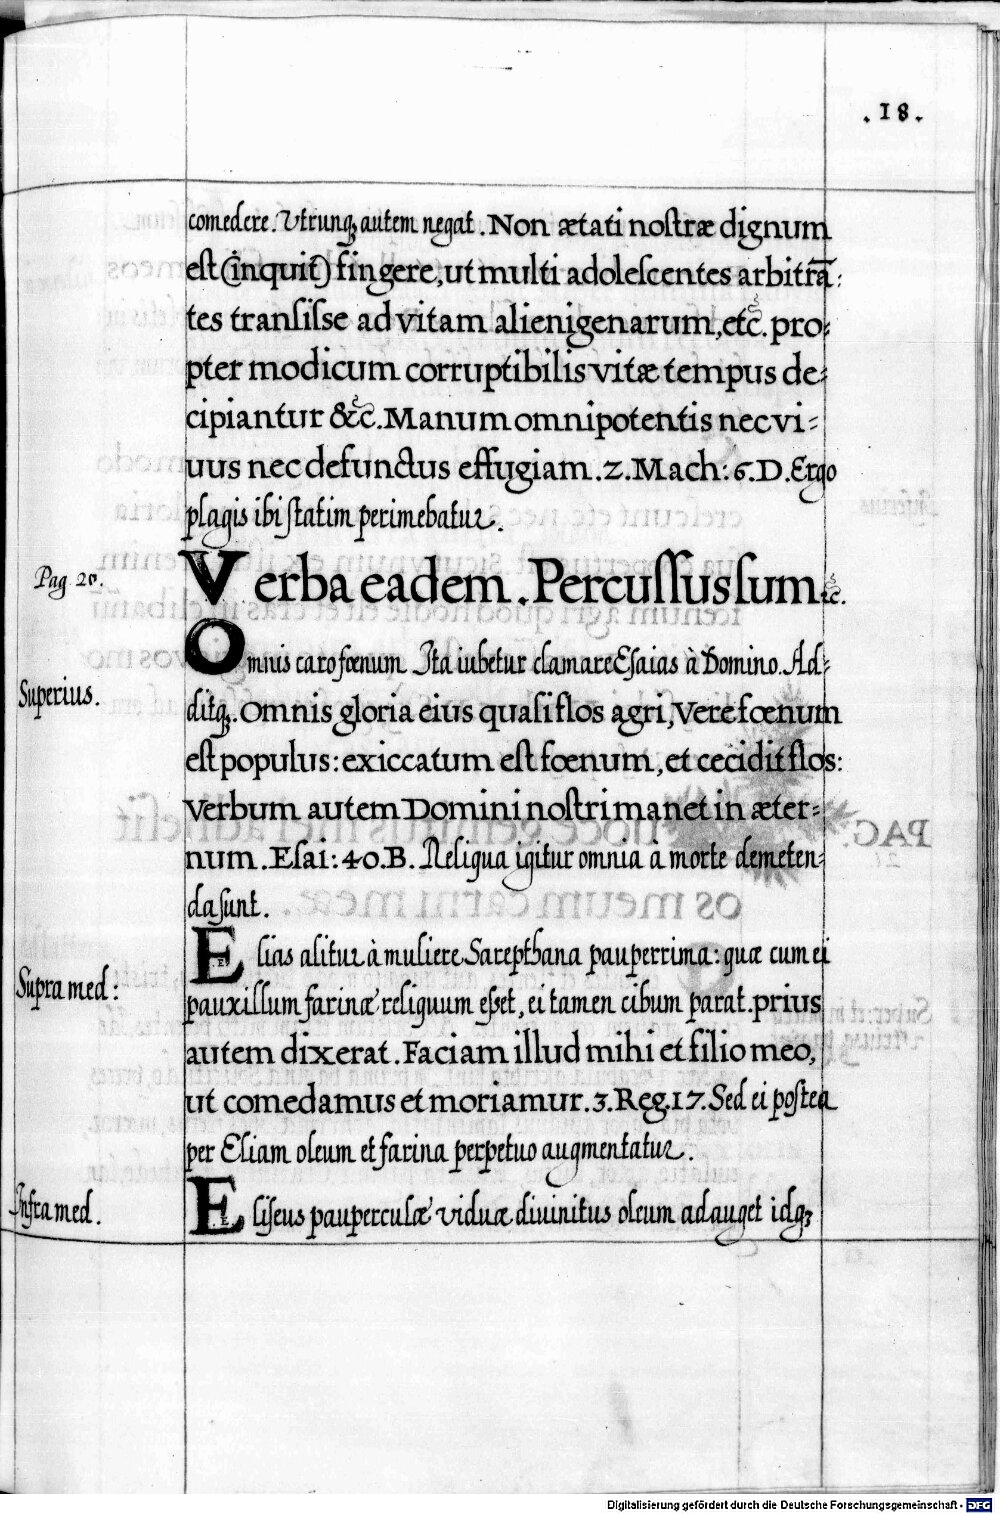 .18.
comedere. Utrunqꝫ autem negat. Non ætati nostræ dignum
est (inquit) fingere, ut multi adolescentes arbitrã:
tes transisse ad vitam alienigenarum, etc̃. pro⸗
pter modicum corruptibilis vitæ tempus de⸗
cipiantur &c̃. Manum omnipotentis nec vi⸗
uus nec defunctus effugiam. 2. Mach: 6. D. Ergo
plagis ibi statim perimebatur.
Pag 20.
Verba eadem. Percussus sum &c.
Omnis caro fœnum Ita iubetur clamare Esaias à Domino. Ad⸗
Superius.
ditqꝫ. Omnis gloria eius quasi flos agri, Vere fœnum
est populus: exiccatum est fœnum, et cecidit flos:
Verbum autem Domini nostri manet in æter⸗
num. Esai: 40. B. Reliqua igitur omnia à morte demeten⸗
da sunt.
Elias alitur à muliere Sarepthana pauperrima: quæ cum ei
Supra med:
pauxillum farinæ reliquum esset, ei tamen cibum parat. prius
autem dixerat. Faciam illud mihi et filio meo,
ut comedamus et moriamur. 3. Reg. 17. Sed ei postea
per Eliam oleum et farina perpetuo augmentatur.
Infra med.
Eliseus pauperculæ viduæ divinitus oleum adauget idqꝫ
Digitalisierung gefördert durch die Deutsche Forschungsgemeinschaft - DFG